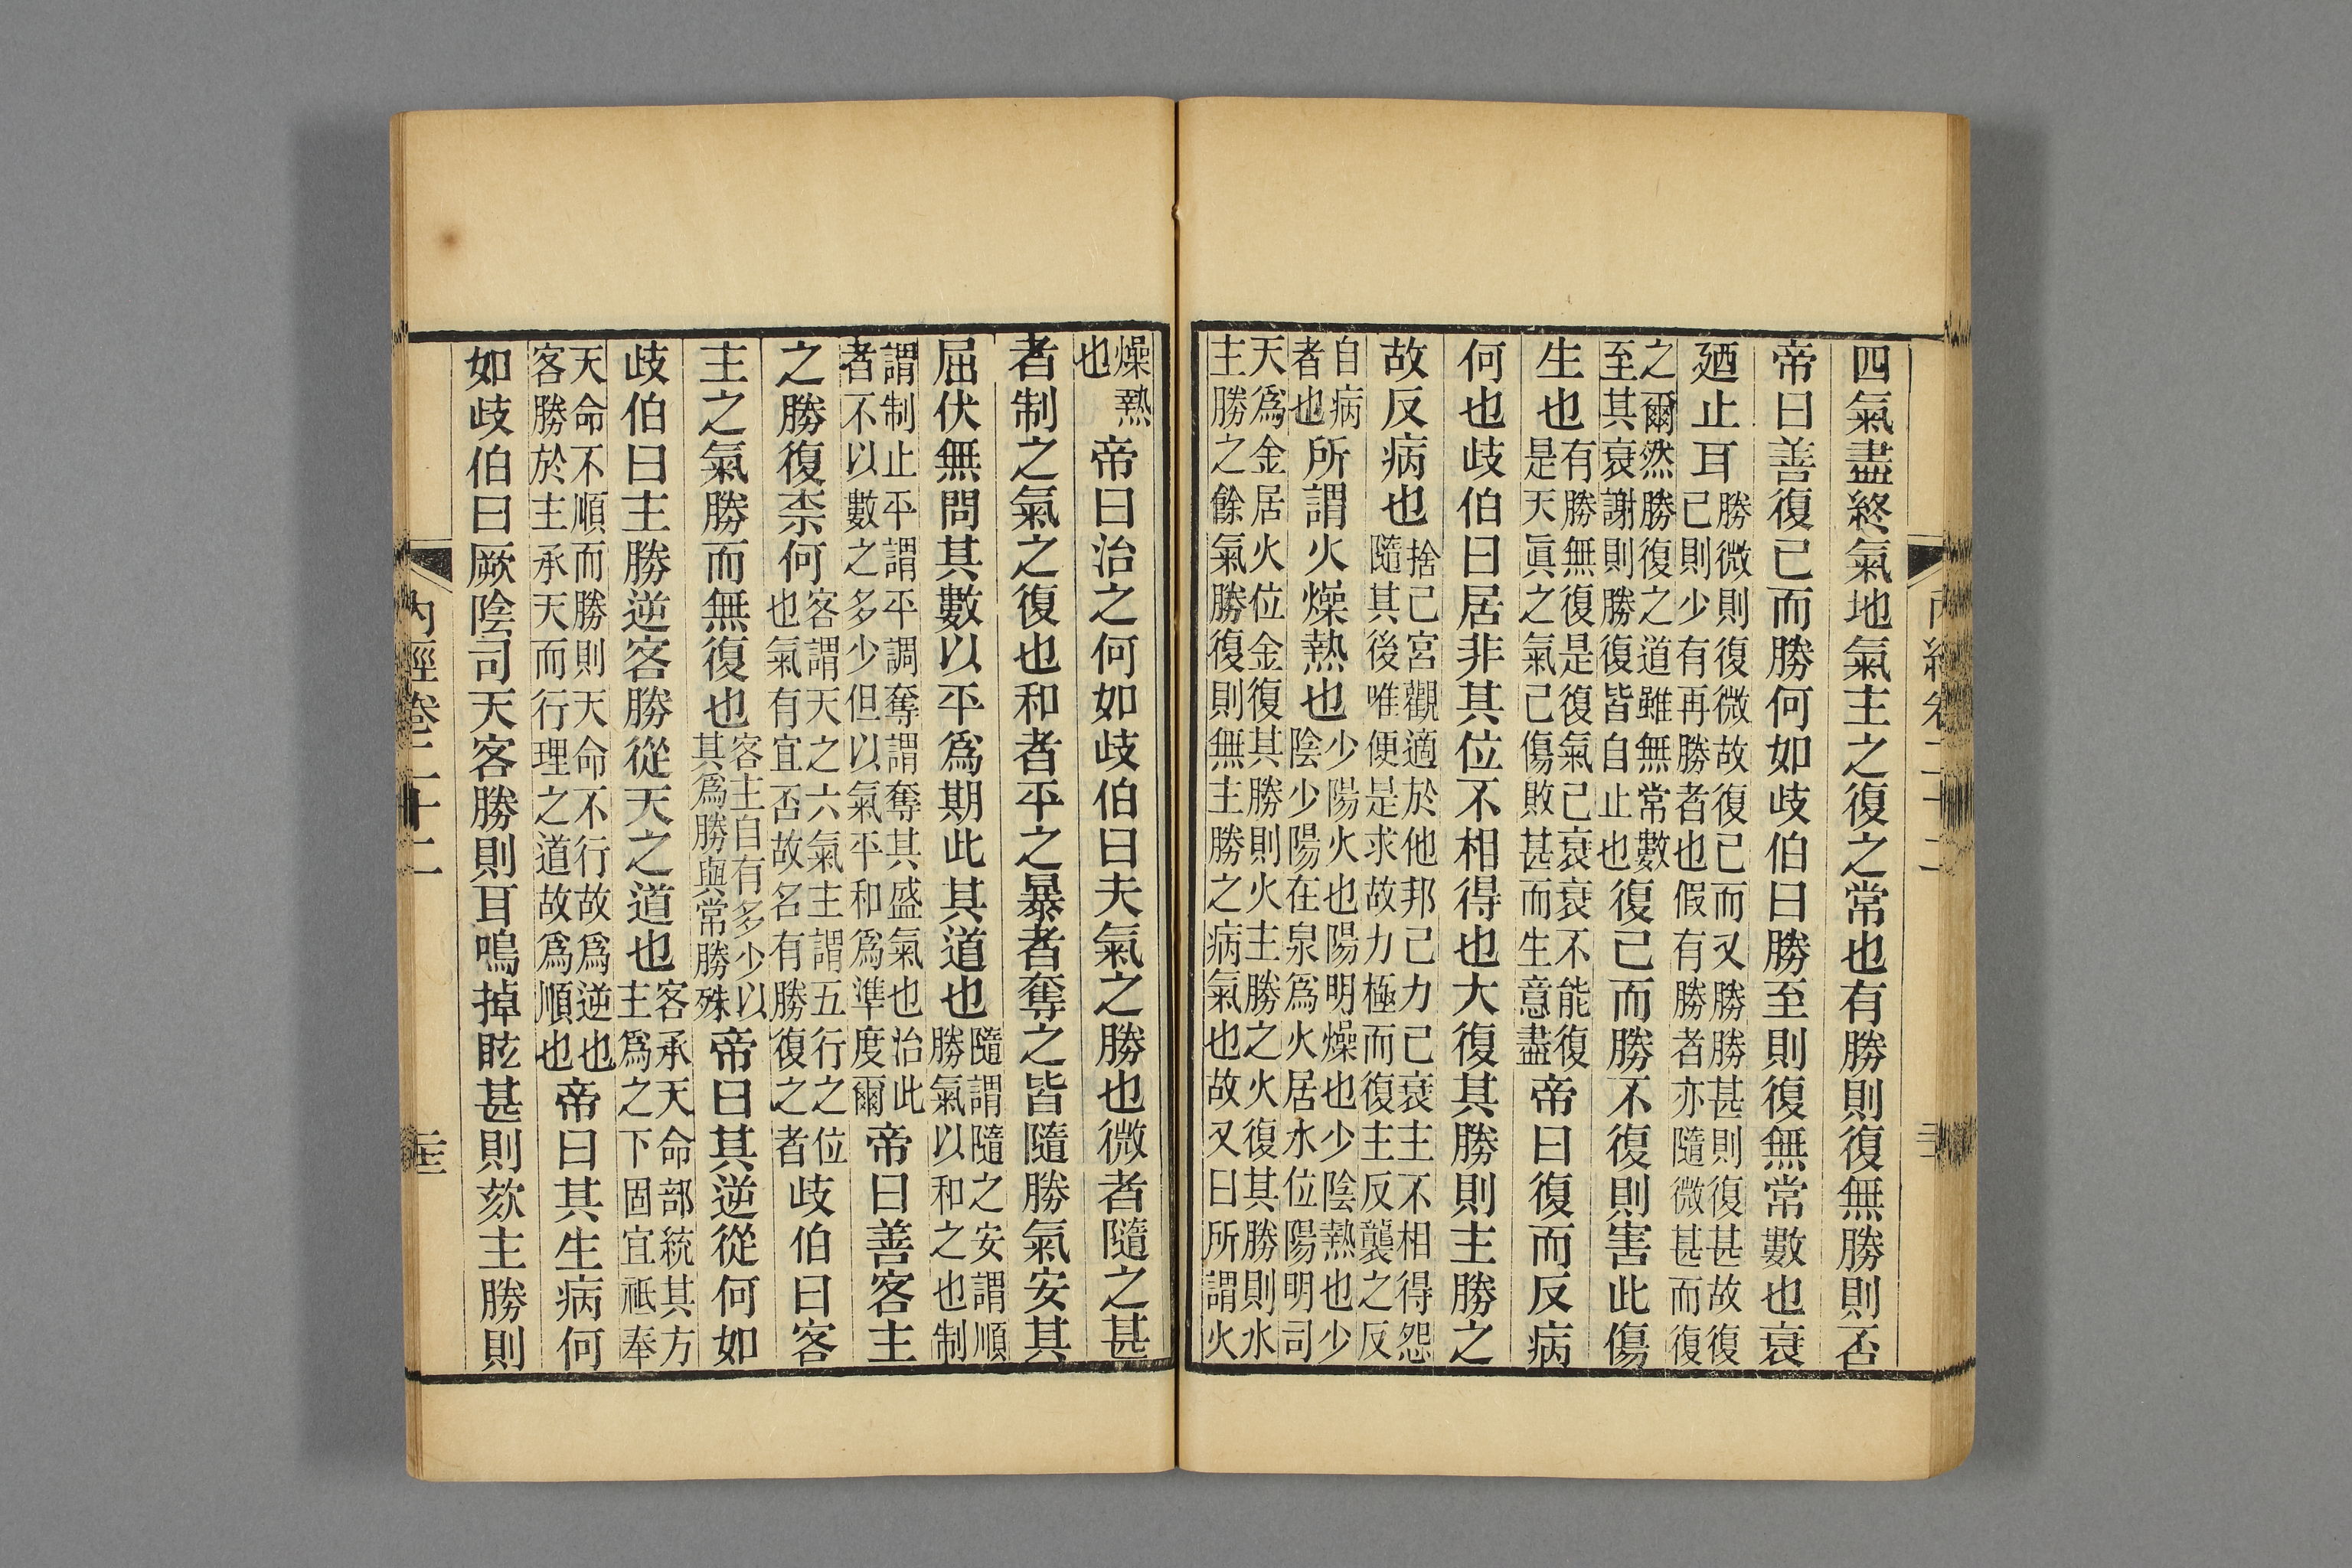 四氣盡終氣地氣主之復之常也有勝則復無勝則否
帝曰善復已而勝何如歧伯曰勝至則復無常數也衰
廼止耳勝微則復微故復已而又勝勝甚則復甚故復已則少有再勝者也假有勝者亦隨微甚而復
之爾然勝復之道雖無常數至其衰謝則勝復皆自止也復已而勝不復則害此傷
生也有勝無復是復氣已衰衰不能復是天眞之氣已傷敗甚而生意盡帝曰復而反病
何也歧伯曰居非其位不相得也大復其勝則主勝之
故反病也捨己宮觀適於他邦己力已衰主不相得怨隨其後唯便是求故力極而復主反襲之反
自病者也所謂火燥熱也少陽火也陽明燥也少陰熱也少陰少陽在泉爲火居水位陽明司
天爲金居火位金復其勝則火主勝之火復其勝則水主勝之餘氣勝復則無主勝之病氣也故又曰所謂火
燥熱也帝曰治之何如歧伯曰夫氣之勝也微者隨之甚
者制之氣之復也和者平之暴者奪之皆隨勝氣安其
屈伏無問其數以平爲期此其道也隨謂隨之安謂順勝氣以和之也制
謂制止平謂平調奪謂奪其盛氣也治此者不以數之多少但以氣平和爲準度爾帝曰善客主
之勝復柰何客謂天之六氣主謂五行之位也氣有宜否故名有勝復之者歧伯曰客
主之氣勝而無復也客主自有多少以其爲勝與常勝殊帝曰其逆從何如
歧伯曰主勝逆客勝從天之道也客承天命部統其方主爲之下固宜祇奉
天命不順而勝則天命不行故爲逆也客勝於主承天而行理之道故爲順也帝曰其生病何
如歧伯曰厥陰司天客勝則耳鳴掉眩甚則欬主勝則
內經卷二十二